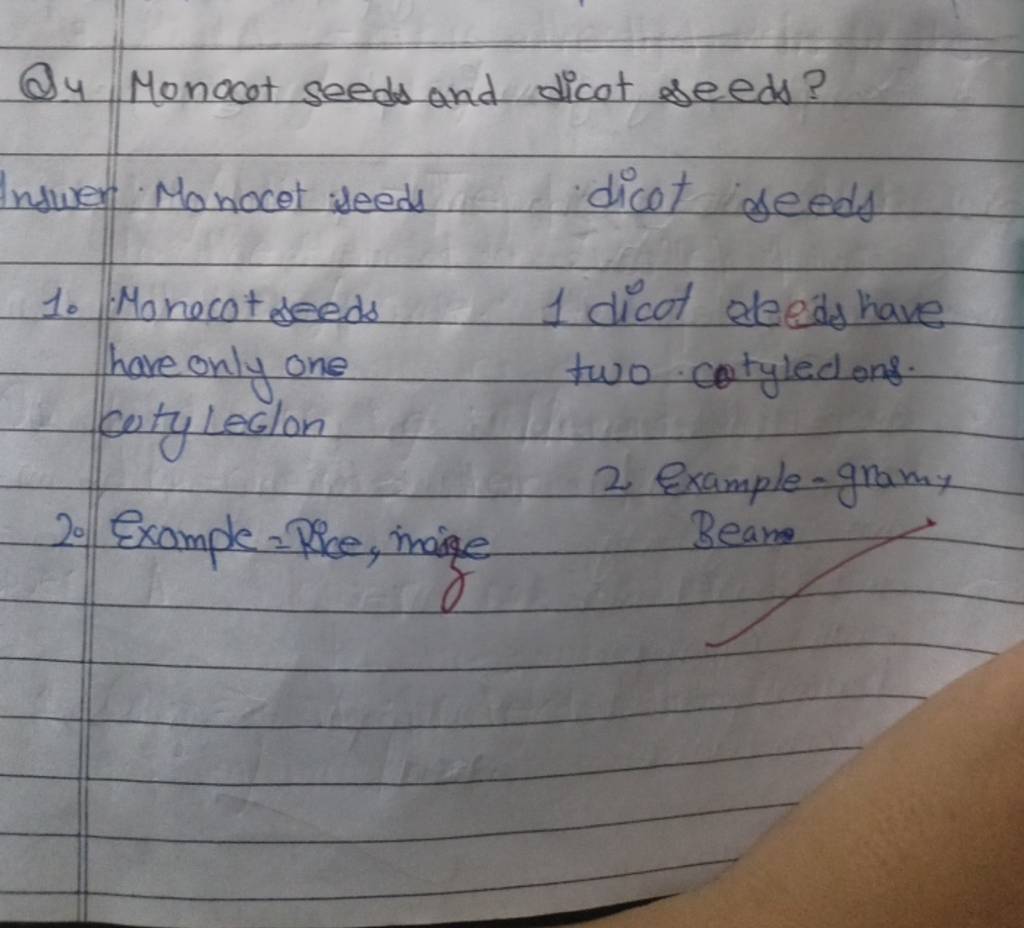 Q4 Monocot seeds and dicot seeds?
Answer Monocot seeds dicot seeds
1. Monocot seeds 1 dicot seeds have
have only one two cotyledons.
cotyledon
2 Example - gram,
2. Example = Rice, maize Beans